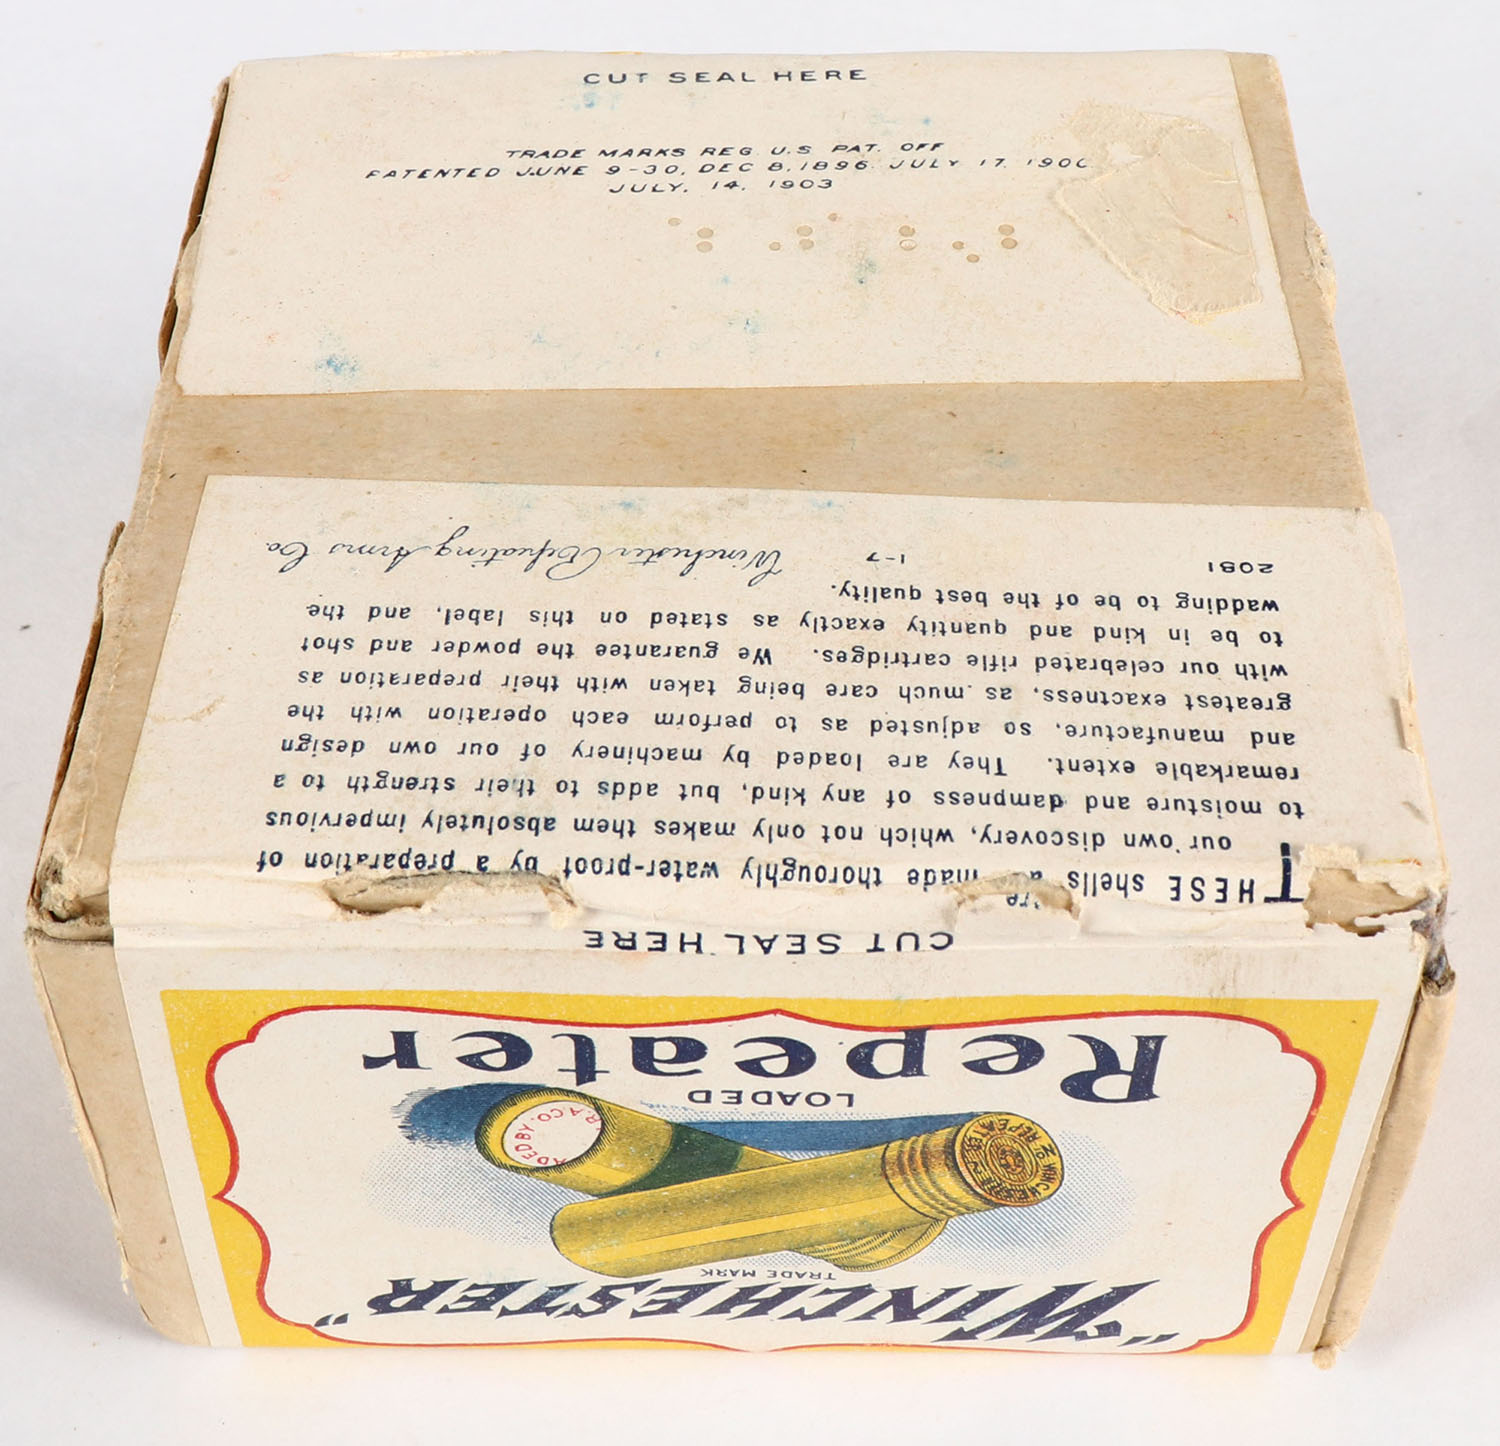 CUT SEAL HERE
TRADE MARKS REG. U.S. PAT. OFF
PATENTED JUNE 9-30, DEC 8, 1896. JULY 17, 190
JULY, 14, 1903
CUT SEAL HERE
THESE shells are made thoroughly water-proof by a preparation of
our own discovery, which not only makes them absolutely impervious
to moisture and dampness of any kind, but adds to their strength to a
remarkable extent. They are loaded by machinery of our own design
and manufacture, so adjusted as to perform each operation with the
greatest exactness, as much care being taken with their preparation as
with our celebrated rifle cartridges. We guarantee the powder and shot
to be in kind and quantity exactly as stated on this label, and the
wadding to be of the best quality.
2081 1-7 Winchester Repeating Arms Co.
"WINCHESTER"
TRADE MARK
WINCHESTER
No
REPEATER
ADED BY
R.A.CO.
LOADED
Repeater